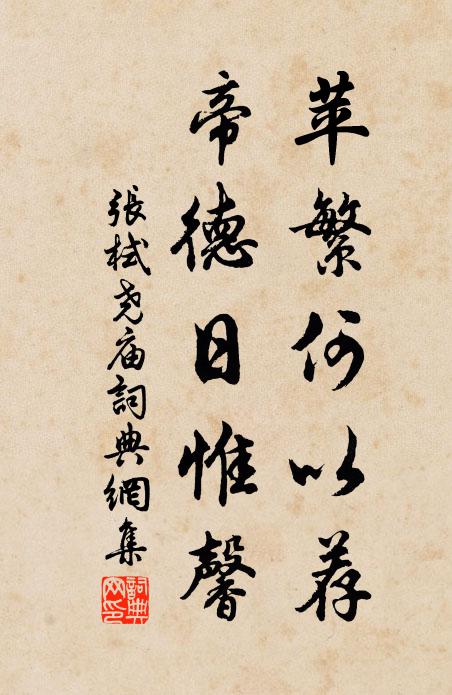 苹繁何以荐
帝德日惟馨
張栻尧庙詞典網集
詞典網印